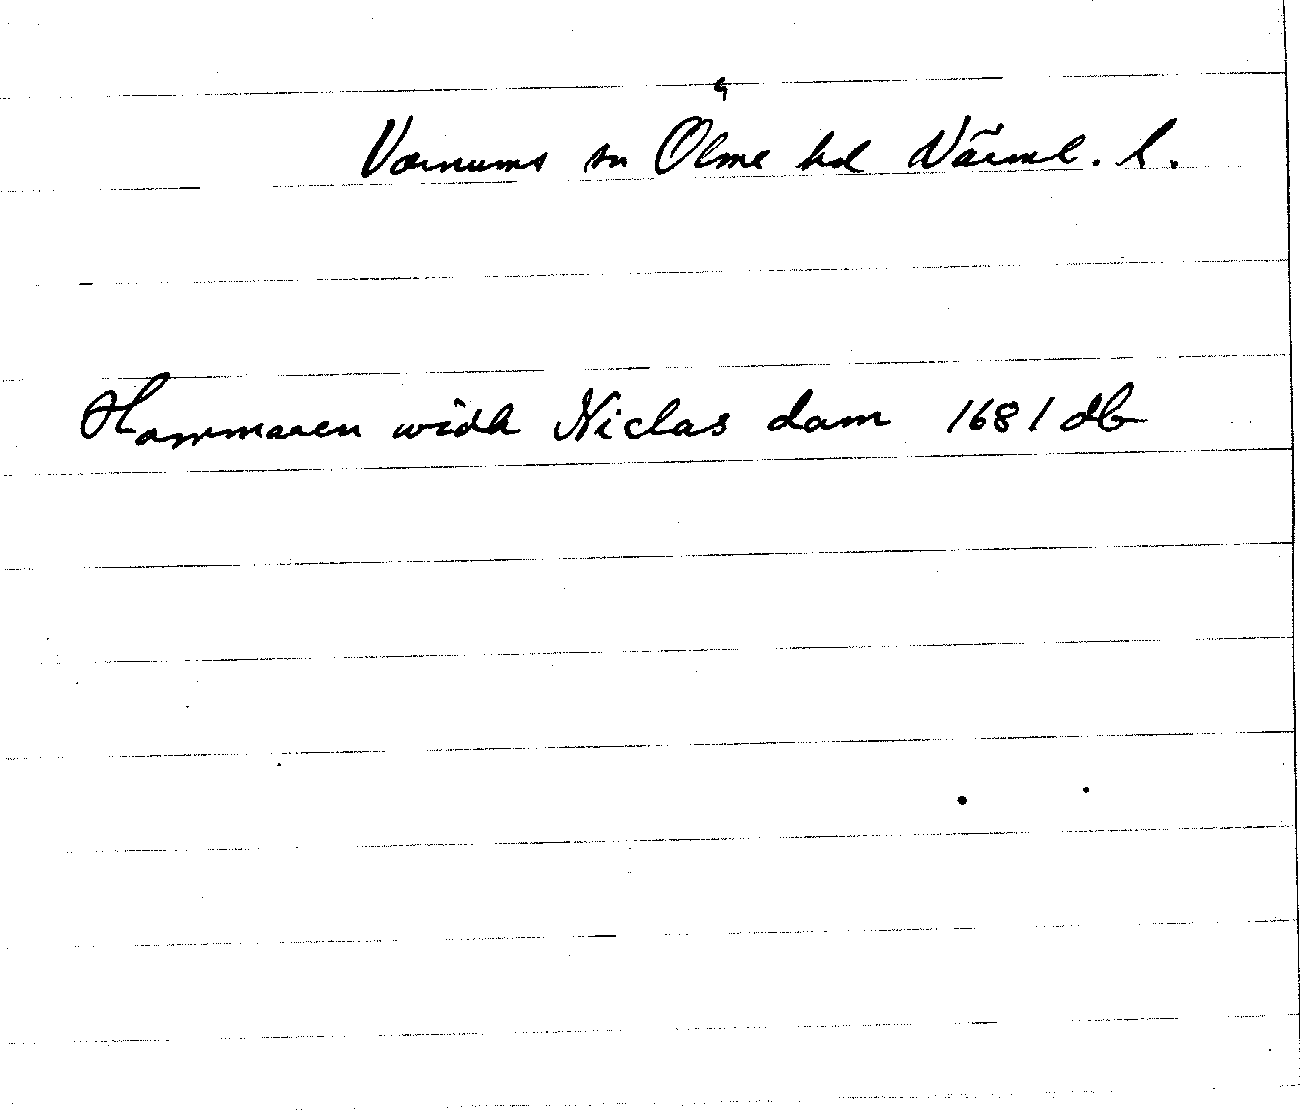 Varnums sn Ölme hd Värml. l.
Hammaren widh Niclas dam 1681 db